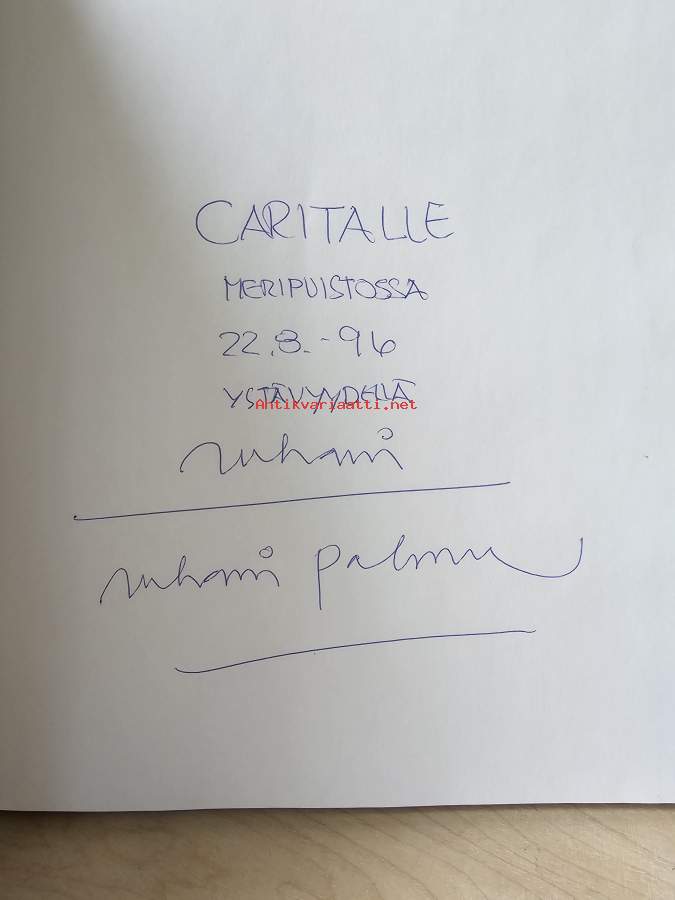 CARITALLE
MERIPUISTOSSA
22.8.-96
YSTÄVYYDELLÄ
Antikvariaatti.net
Juhani
Juhani Palmu